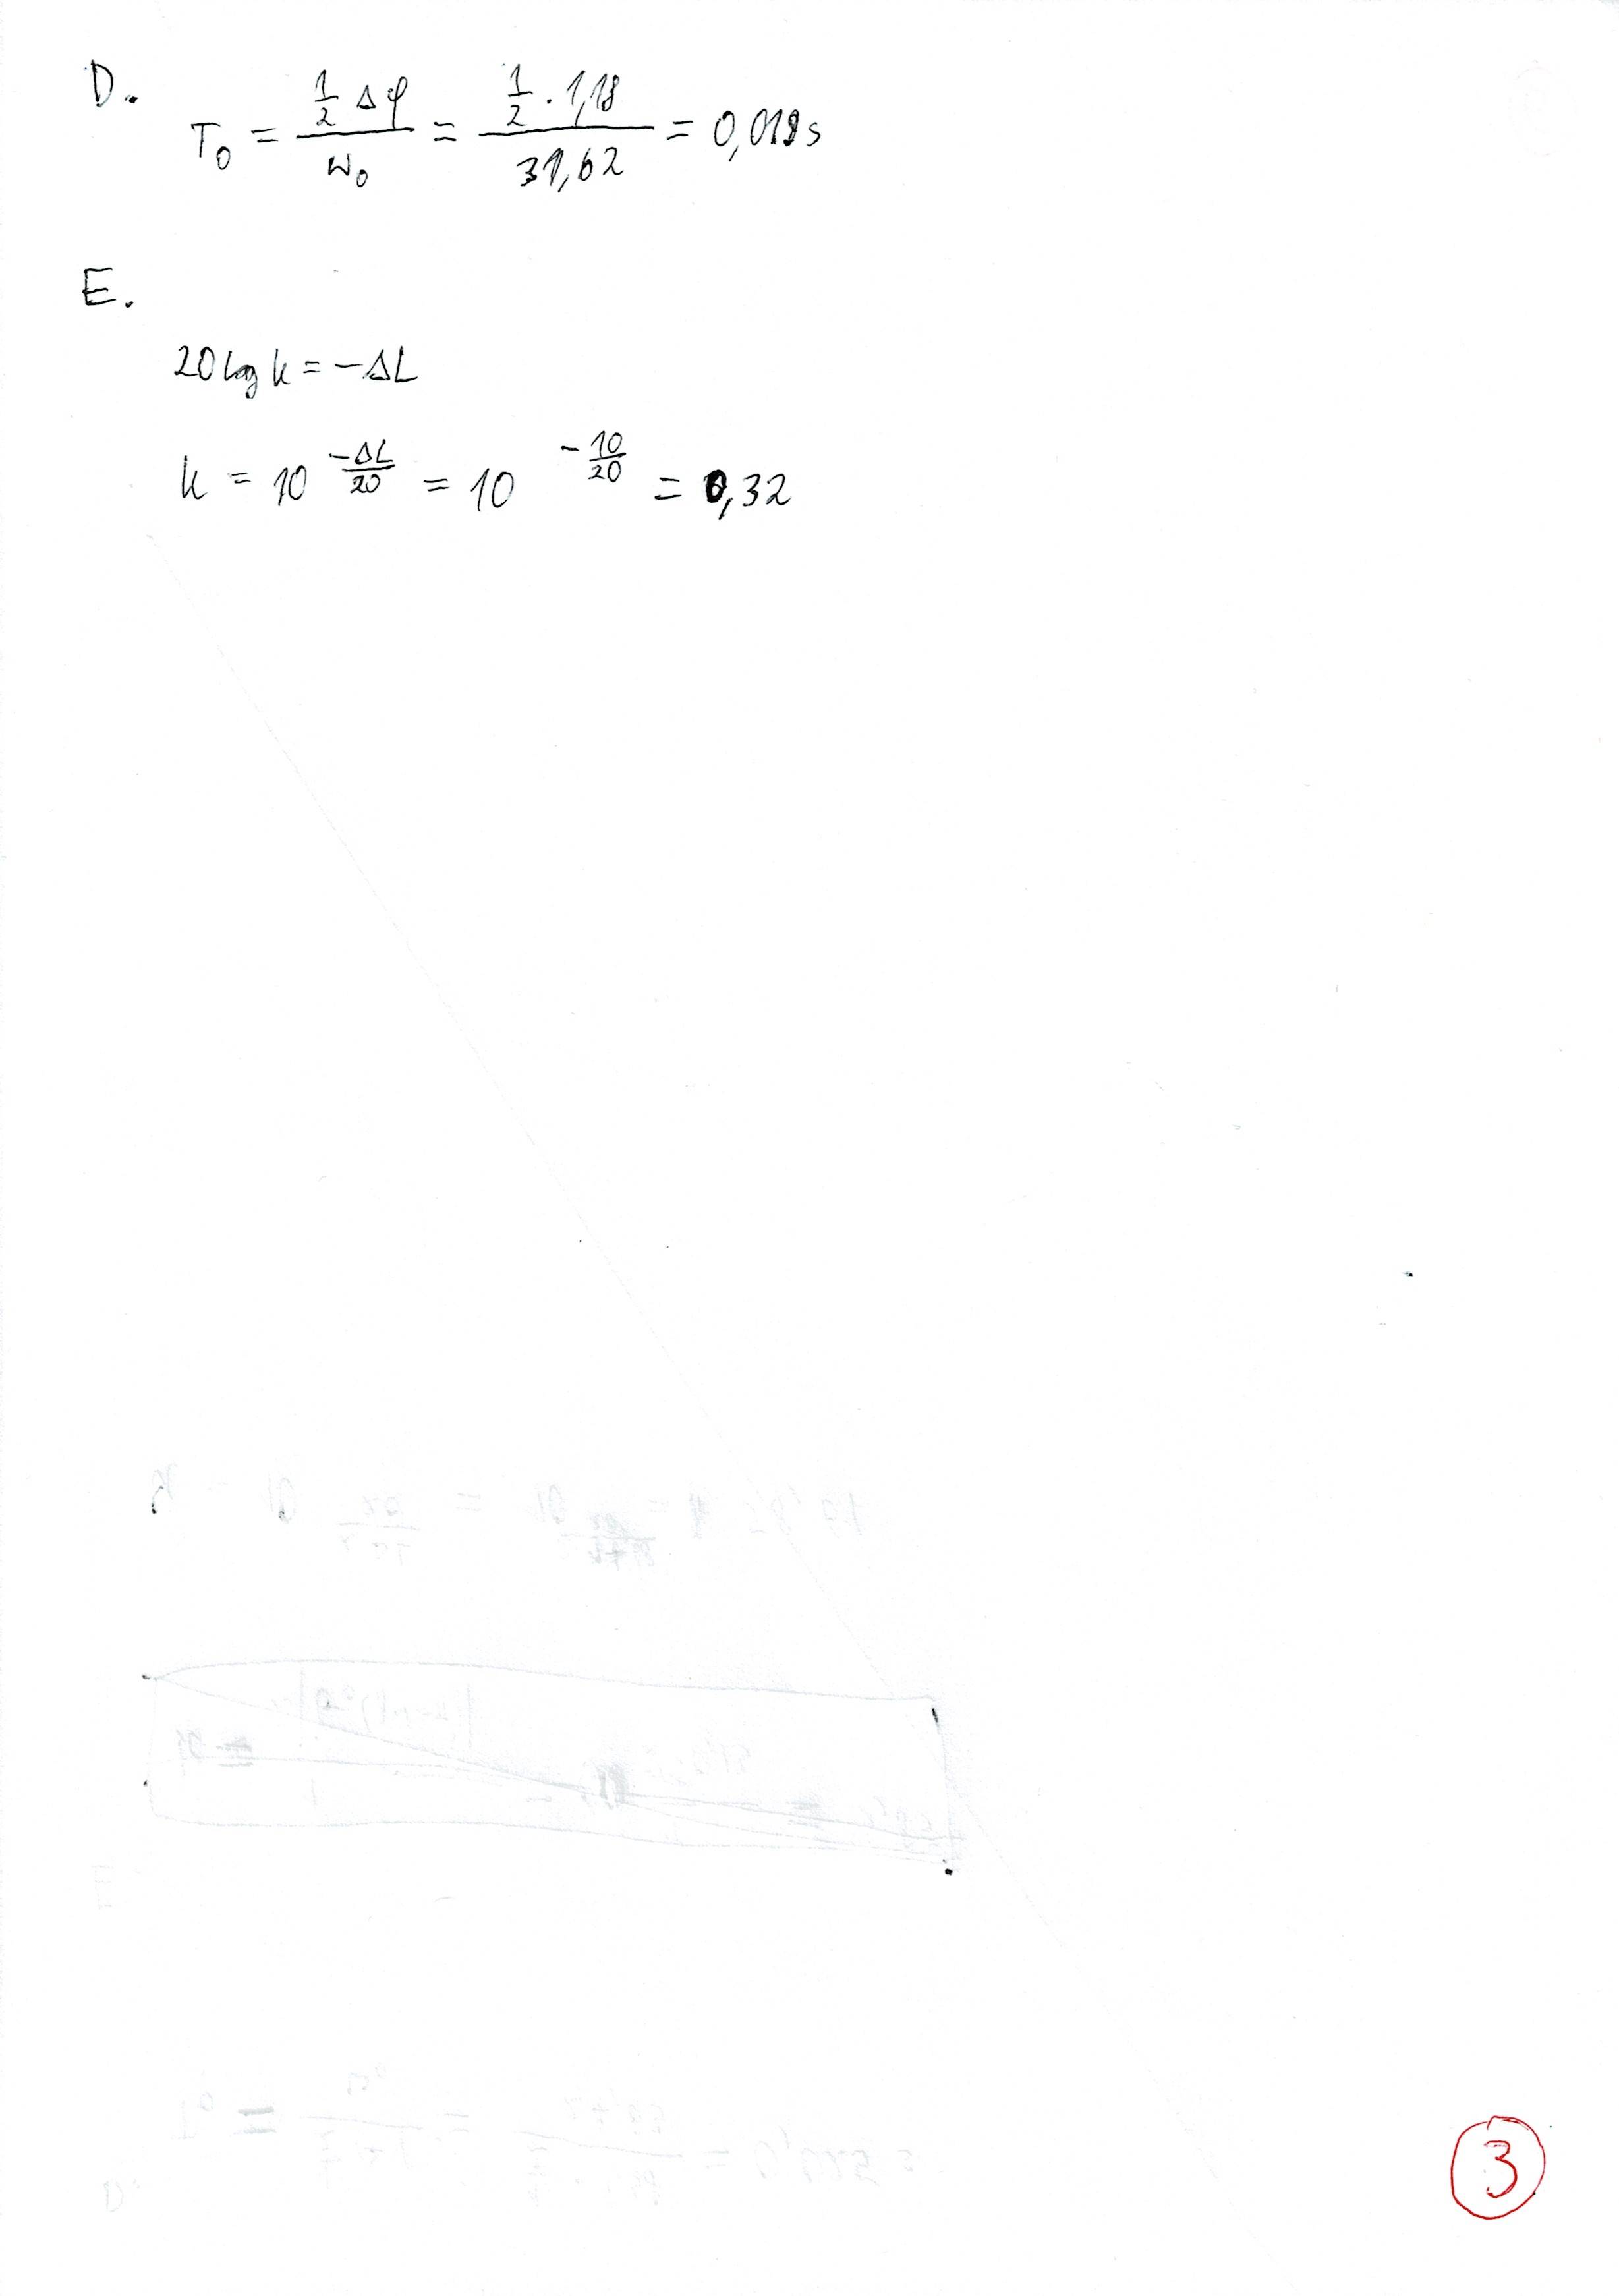 D.
T₀ = (½ Δφ)/ω₀ = (½ · 1,18)/31,62 = 0,019s
E.
20 log k = -ΔL
k = 10^(-ΔL/20) = 10^(-10/20) = 0,32
3